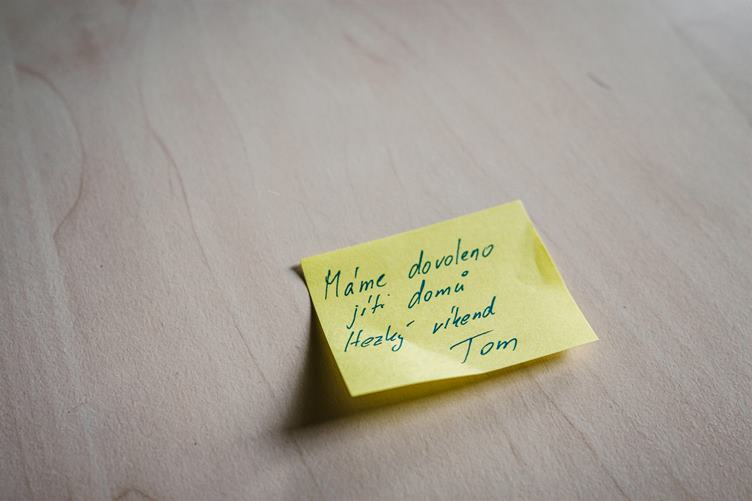 Máme dovoleno
jíti domů
Hezký víkend
Tom